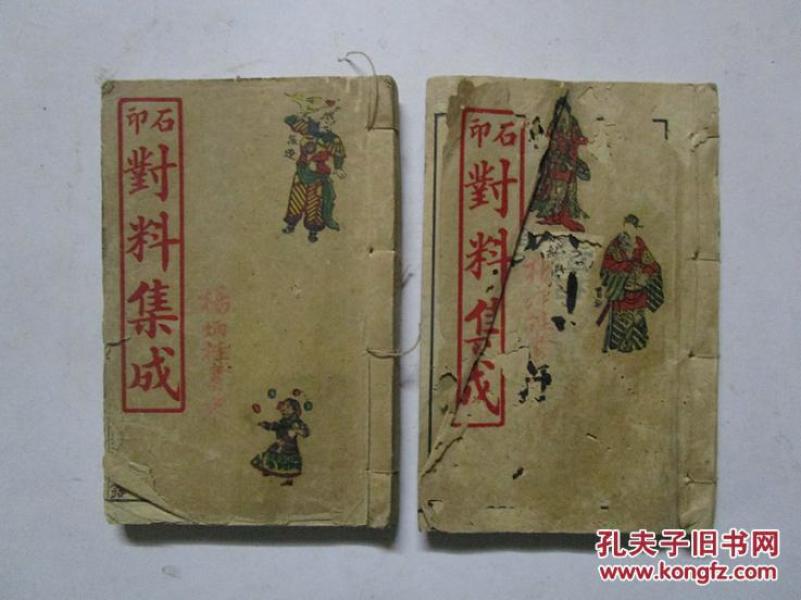 石印
對料集成
石印
對料集成
孔夫子旧书网
www.kongfz.com